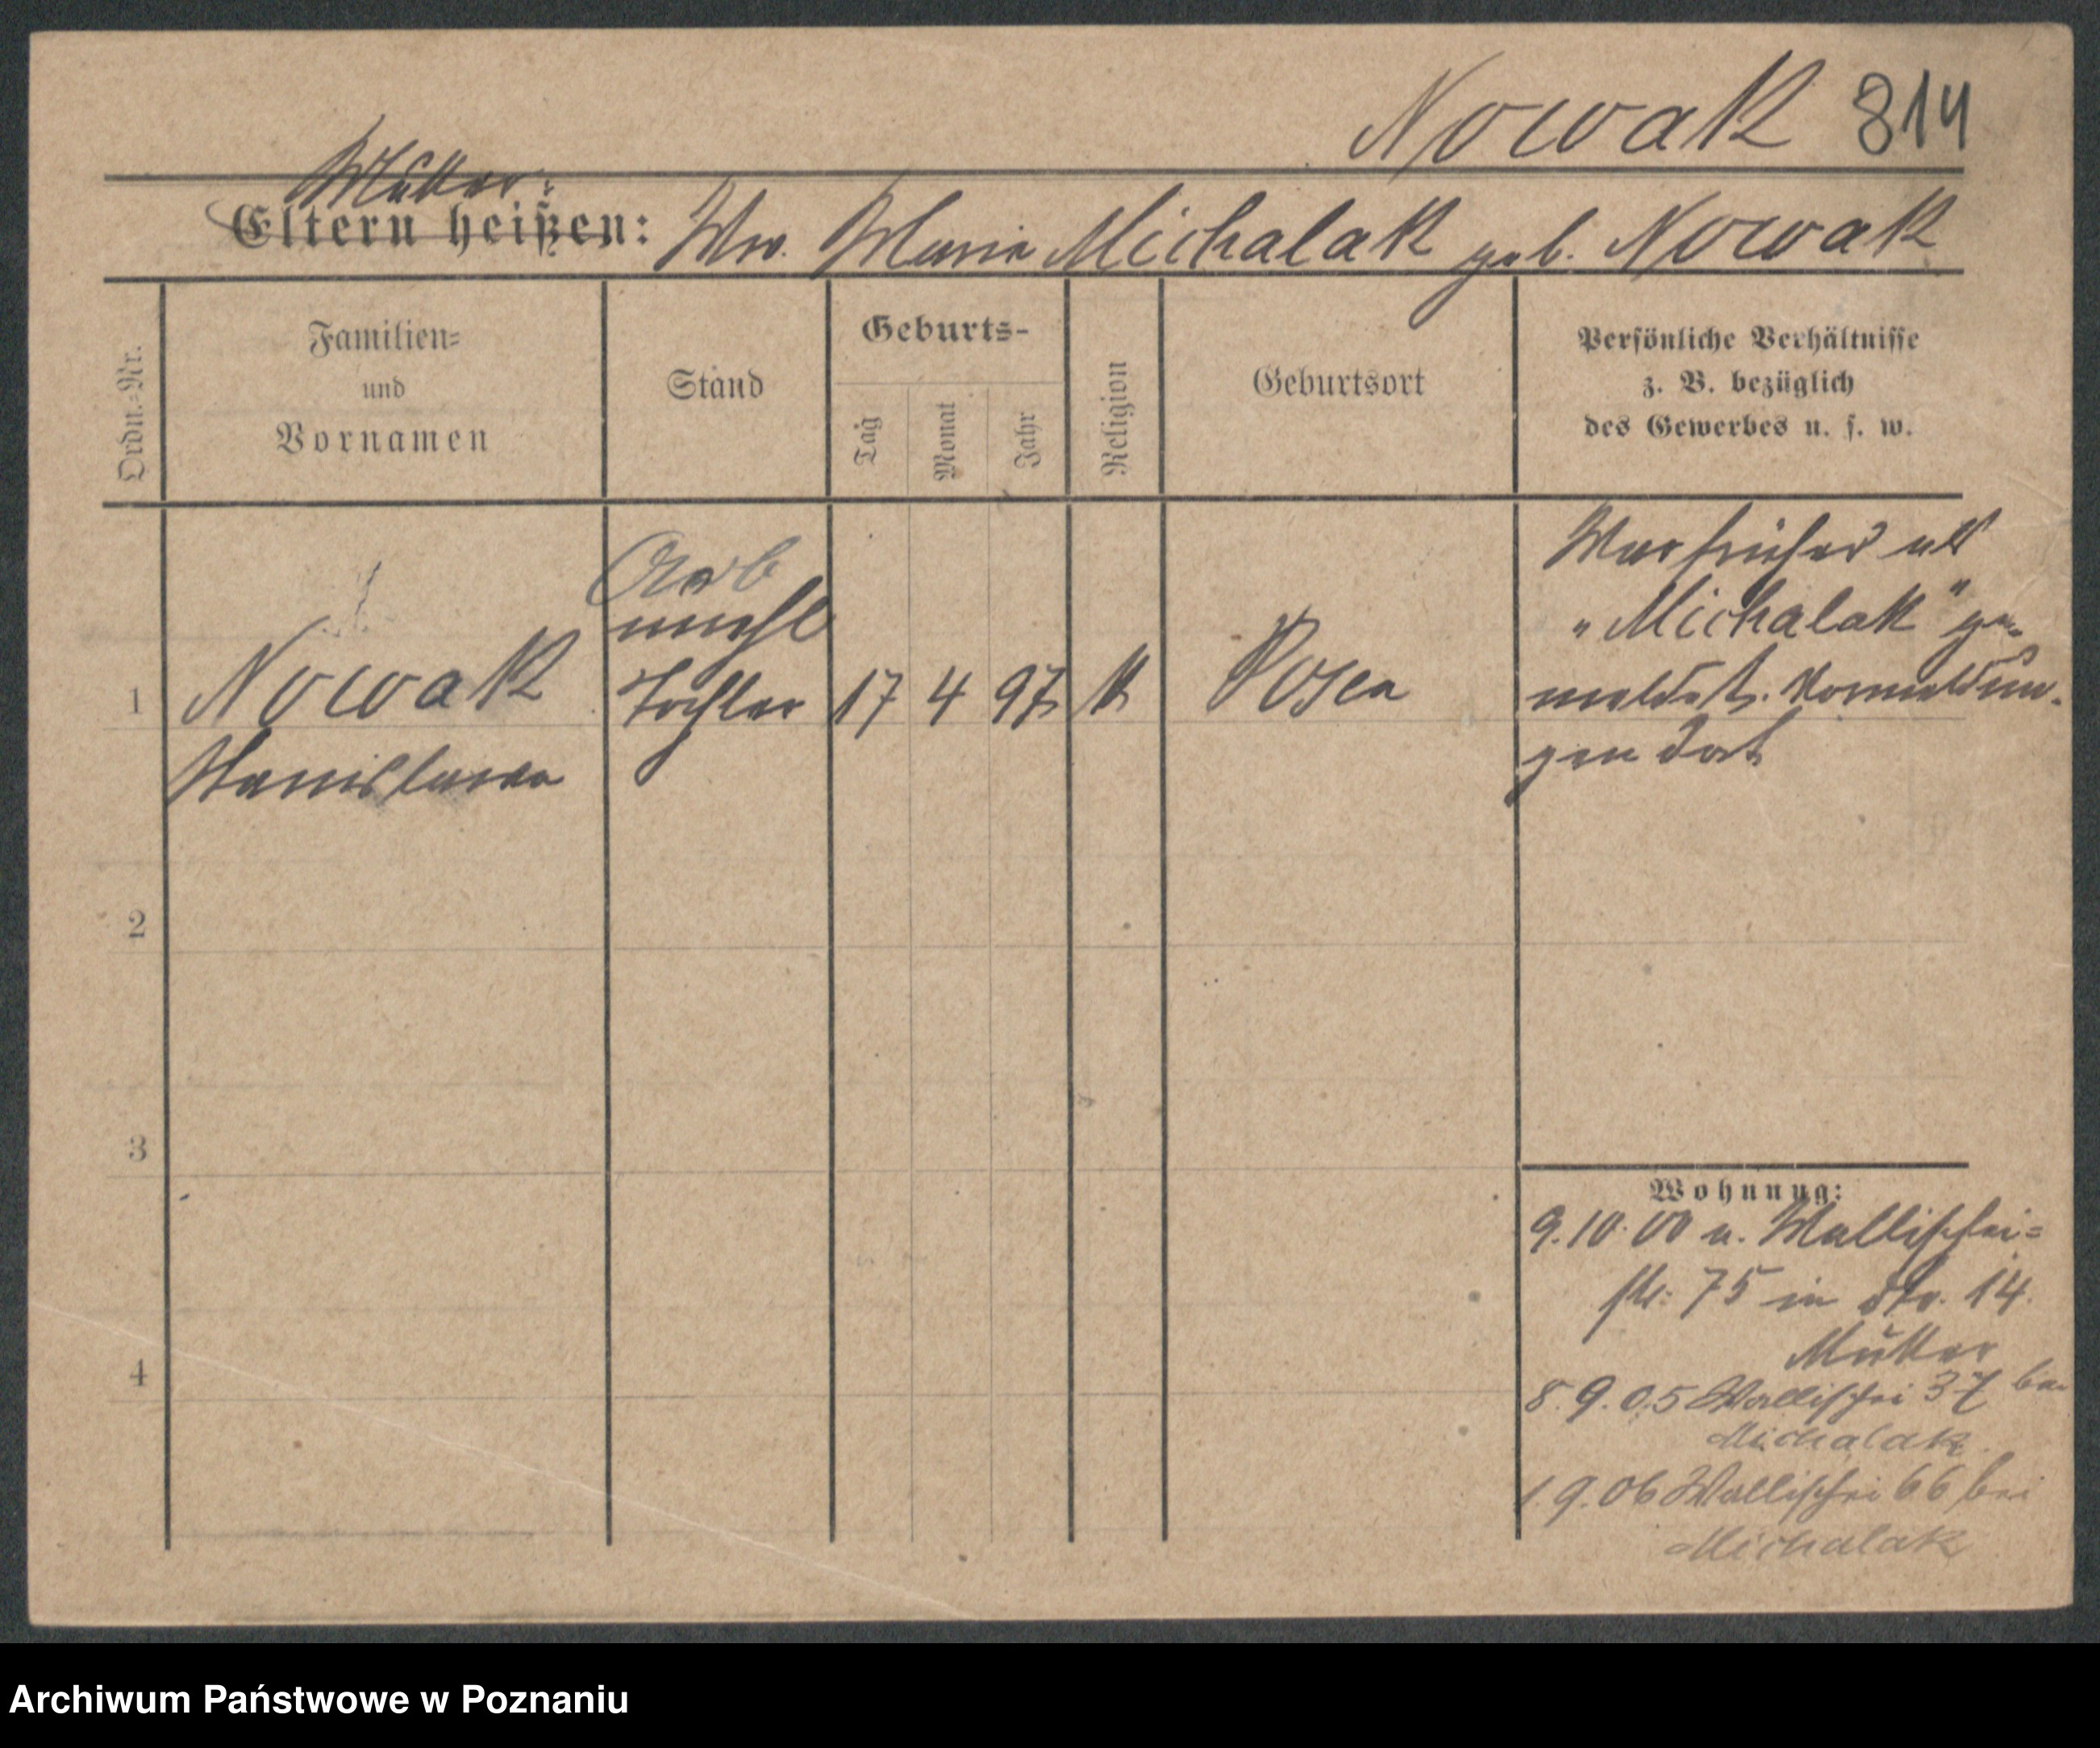 Nowak 814
Mutter:
Eltern heißen: Ww. Maria Michalak geb. Nowak
Ordn.-Nr.
Familien-
und
Vornamen
Stand
Geburts-
Tag
Monat
Jahr
Religion
Geburtsort
Persönliche Verhältnisse
z. B. bezüglich
des Gewerbes u. s. w.
1
Nowak
Stanislawa
Arb
unehl
Tochter
17 4 97
k
Posen
War früher als
„Michalak" ge-
meldet. Vormeldun-
gen dort
2
3
4
Wohnung:
9.10.00 v. Wallischei-
75 in Str. 14
Mutter
8.9.05 Wallischei 37 bei
Michalak
1.9.06 Wallischei 66 bei
Michalak
Archiwum Państwowe w Poznaniu